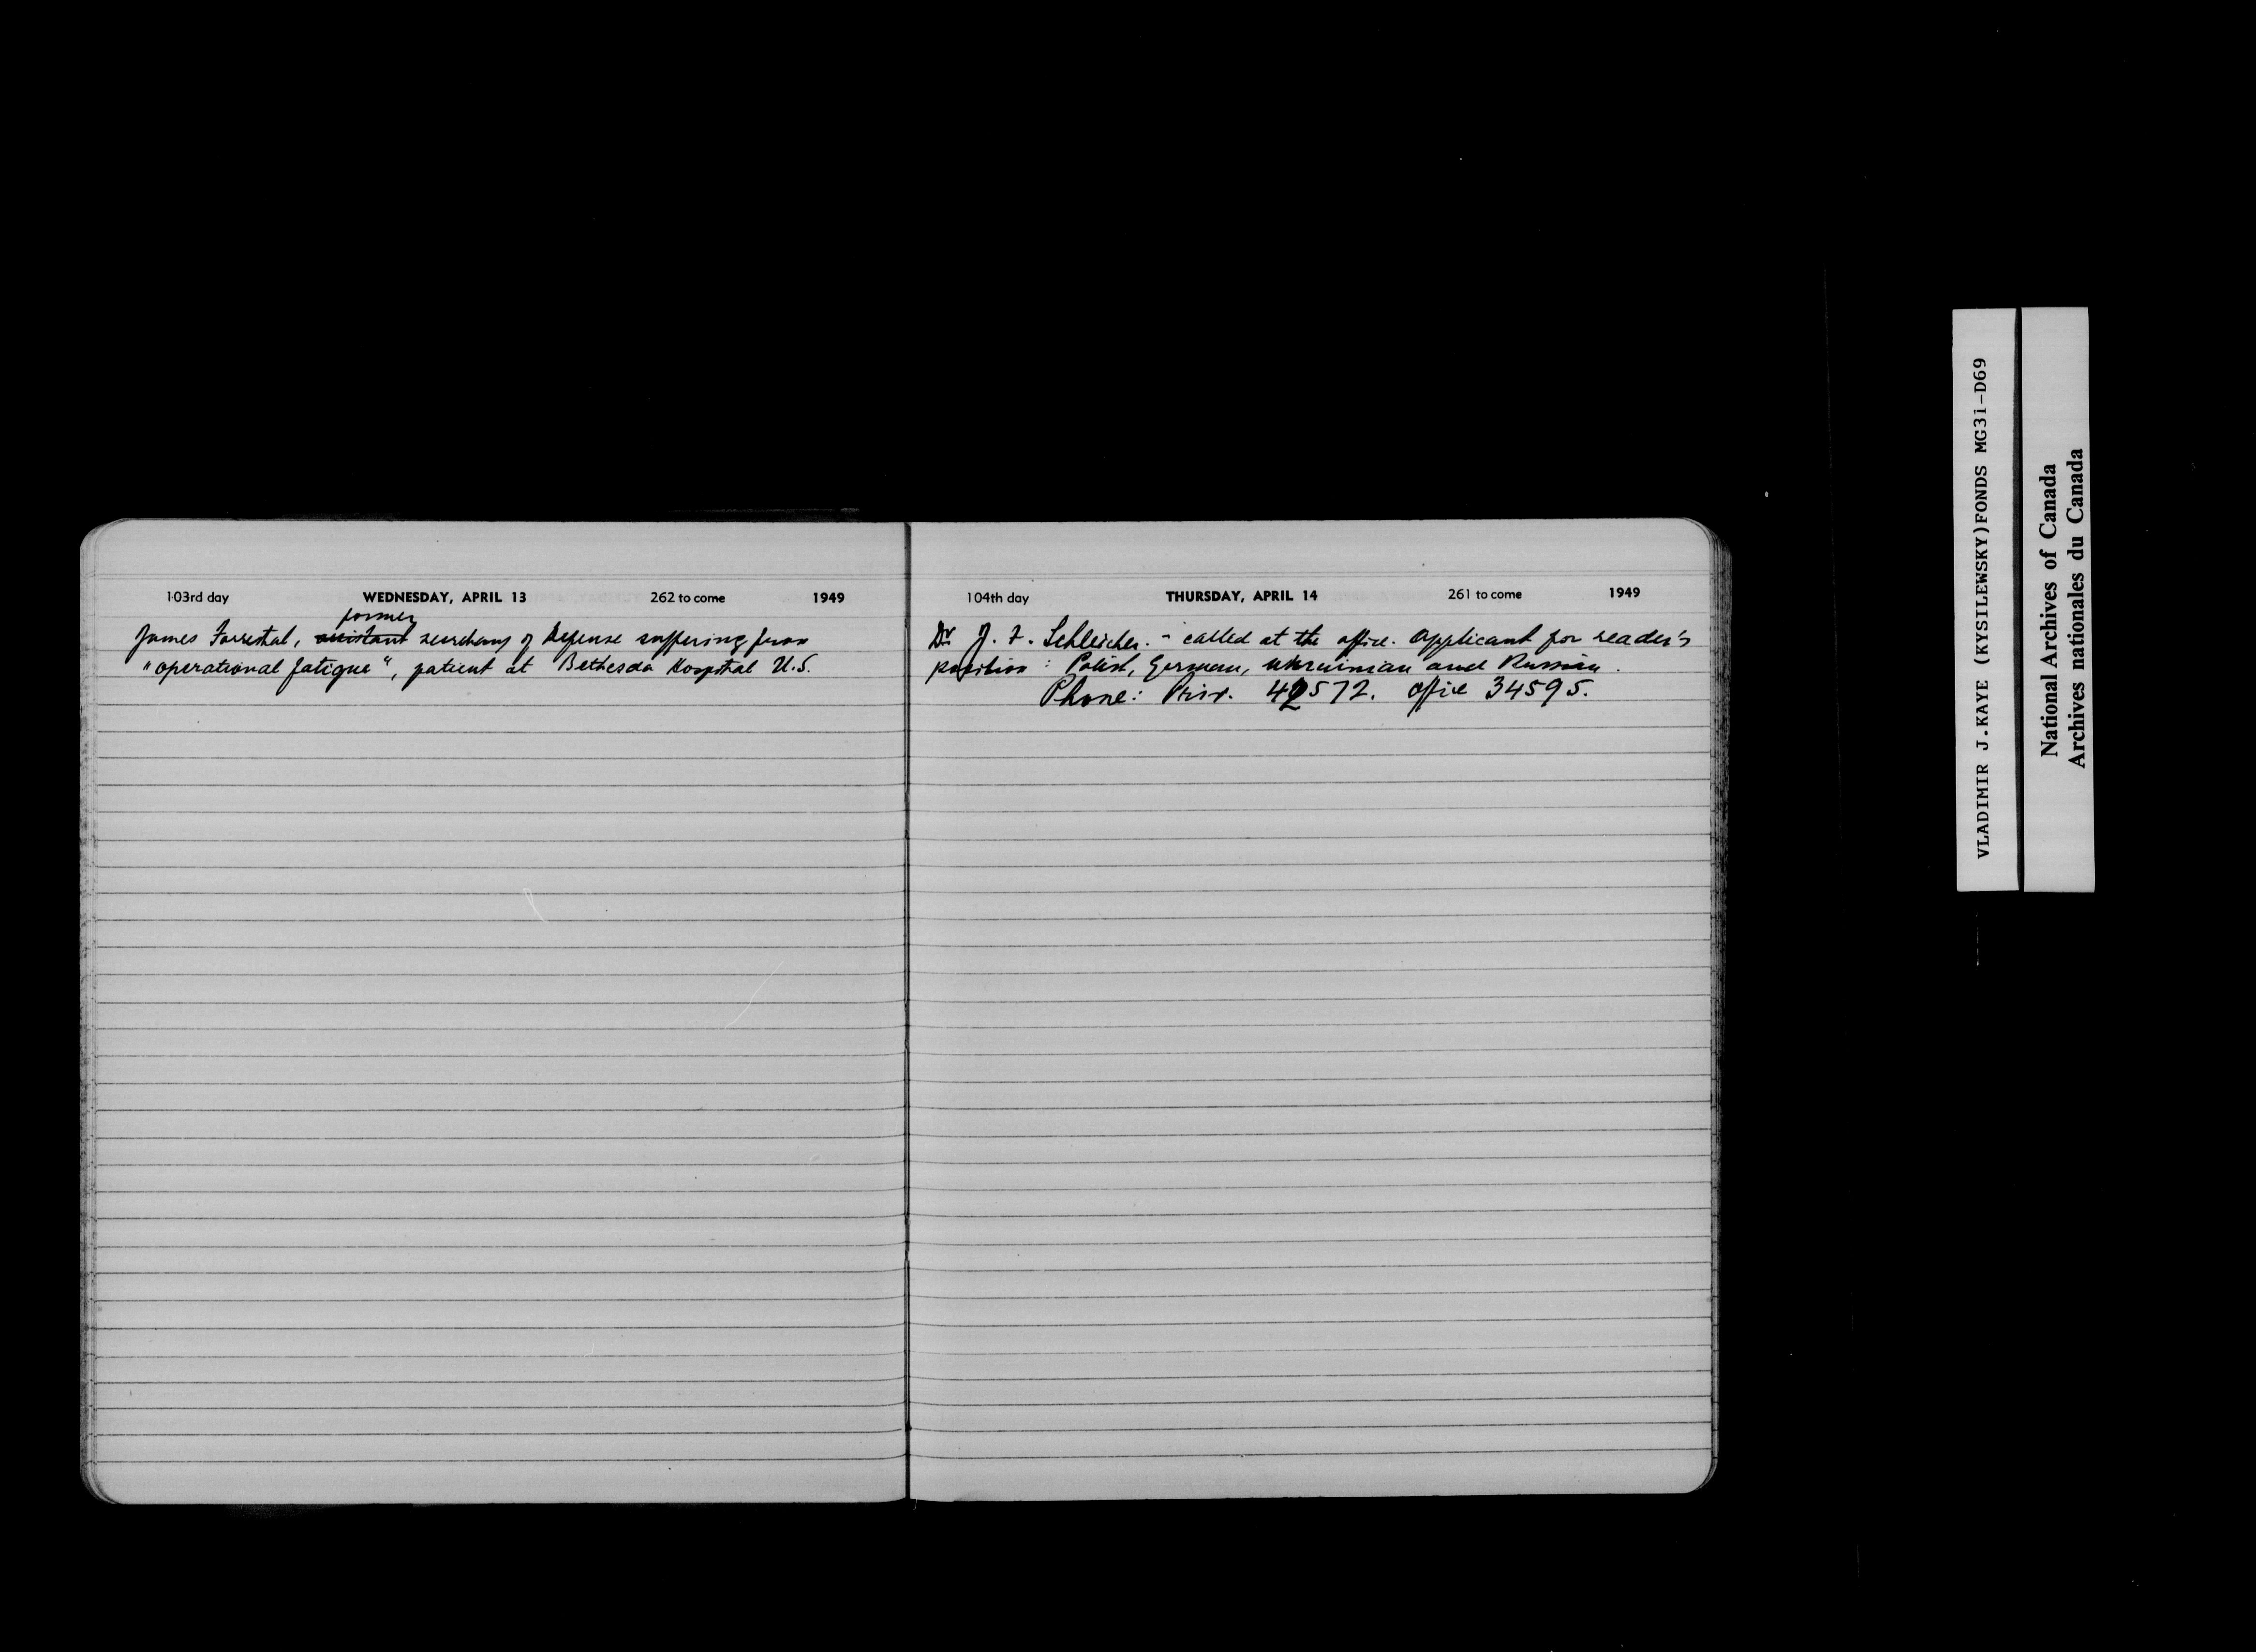 103rd day WEDNESDAY, APRIL 13 262 to come 1949
former
James Forrestal, assistant secretary of Defense suffering from
"operational fatigue", patient at Bethesda Hospital U.S.
104th day THURSDAY, APRIL 14 261 to come 1949
Dr J. F. Schleicher. - called at the office. Applicant for reader's
position: Polish, German, Ukrainian and Russian.
Phone: Priv. 42572. Office 34595.
VLADIMIR J.KAYE (KYSILEWSKY)FONDS MG31-D69
National Archives of Canada
Archives nationales du Canada